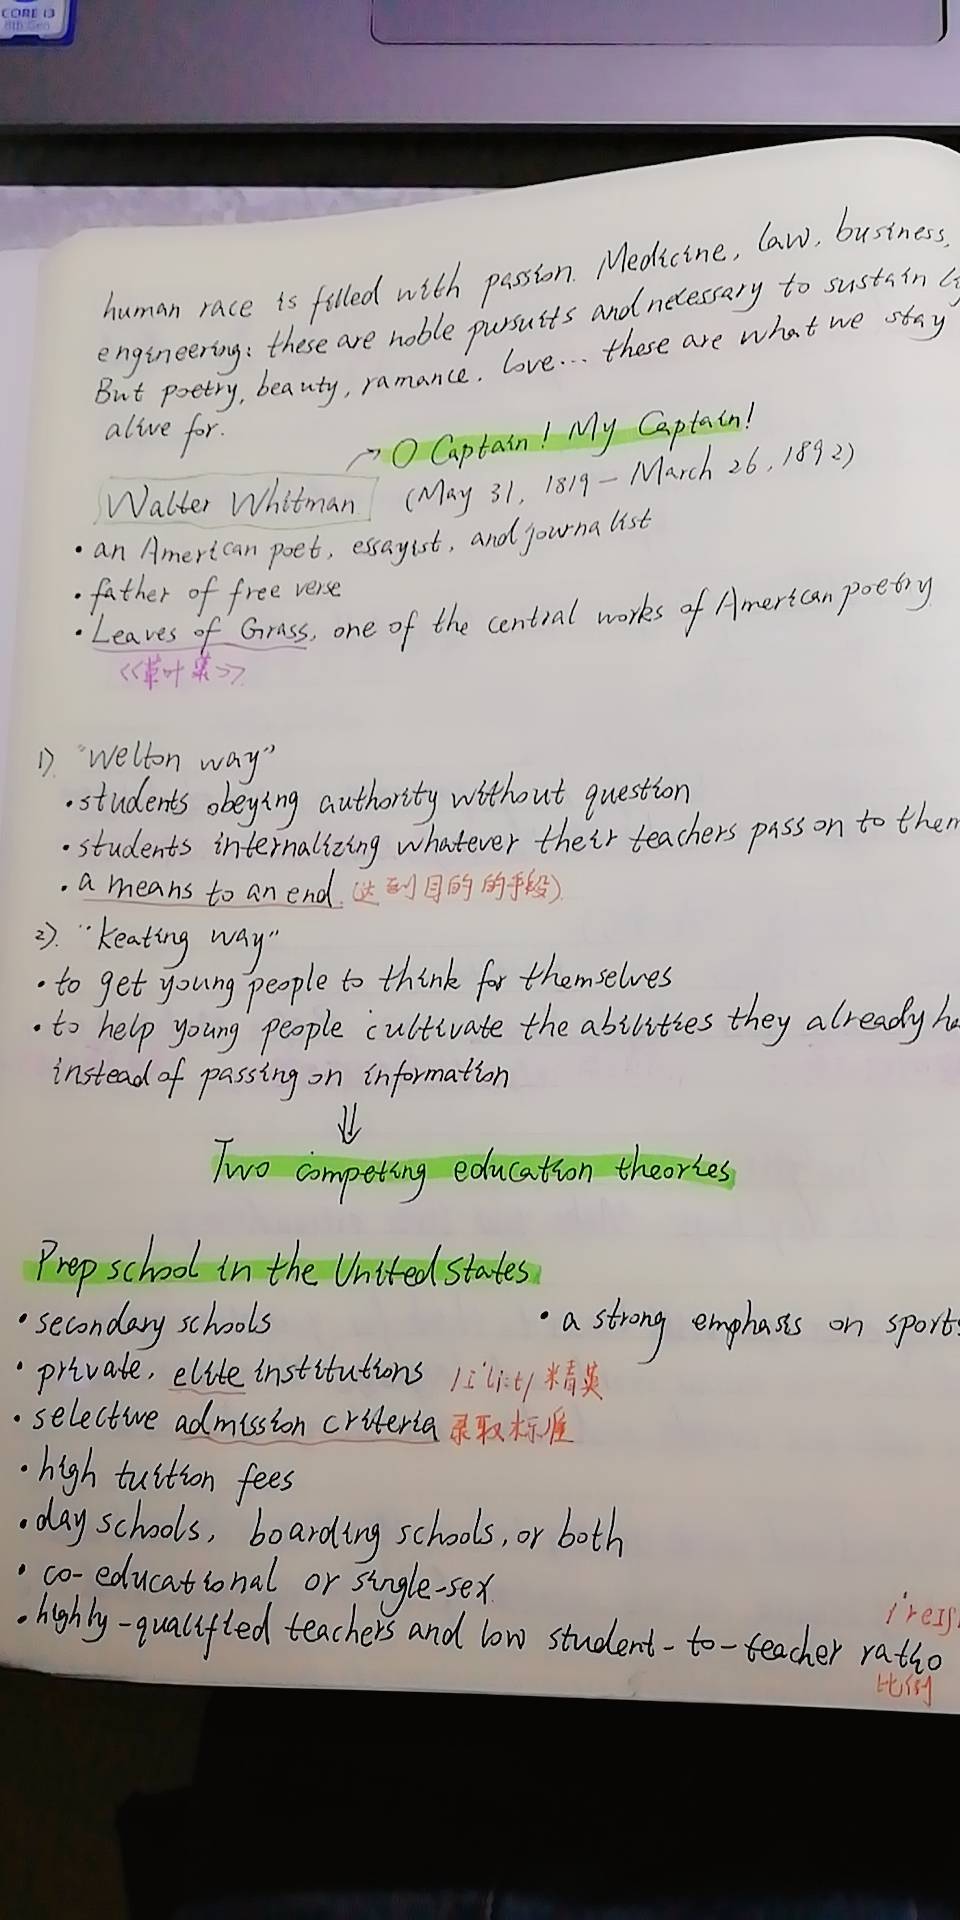 CORE i3
8th Gen
human race is filled with passion. Medicine, law, business,
engineering: these are noble pursuits and necessary to sustain
But poetry, beauty, ramance, love... these are what we stay
alive for.
O Captain! My Captain!
Walter Whitman (May 31, 1819 – March 26, 1892)
• an American poet, essayist, and journalist
• father of free verse
• Leaves of Grass, one of the central works of American poetry
<<草叶集>>
1) "Welton way"
• students obeying authority without question
• students internalizing whatever their teachers pass on to them
• a means to an end. (达到目的的手段)
2). "keating way"
• to get young people to think for themselves
• to help young people cultivate the abilities they already ha
instead of passing on information
⇓
Two competing education theories
Prep school in the United States
• secondary schools • a strong emphasis on sports
• private, elite institutions /i'li:t/ 精英
• selective admission criteria 录取标准
• high tuition fees
• day schools, boarding schools, or both
• co-educational or single-sex
/'reɪʃ
• highly-qualified teachers and low student-to-teacher ratio
比例